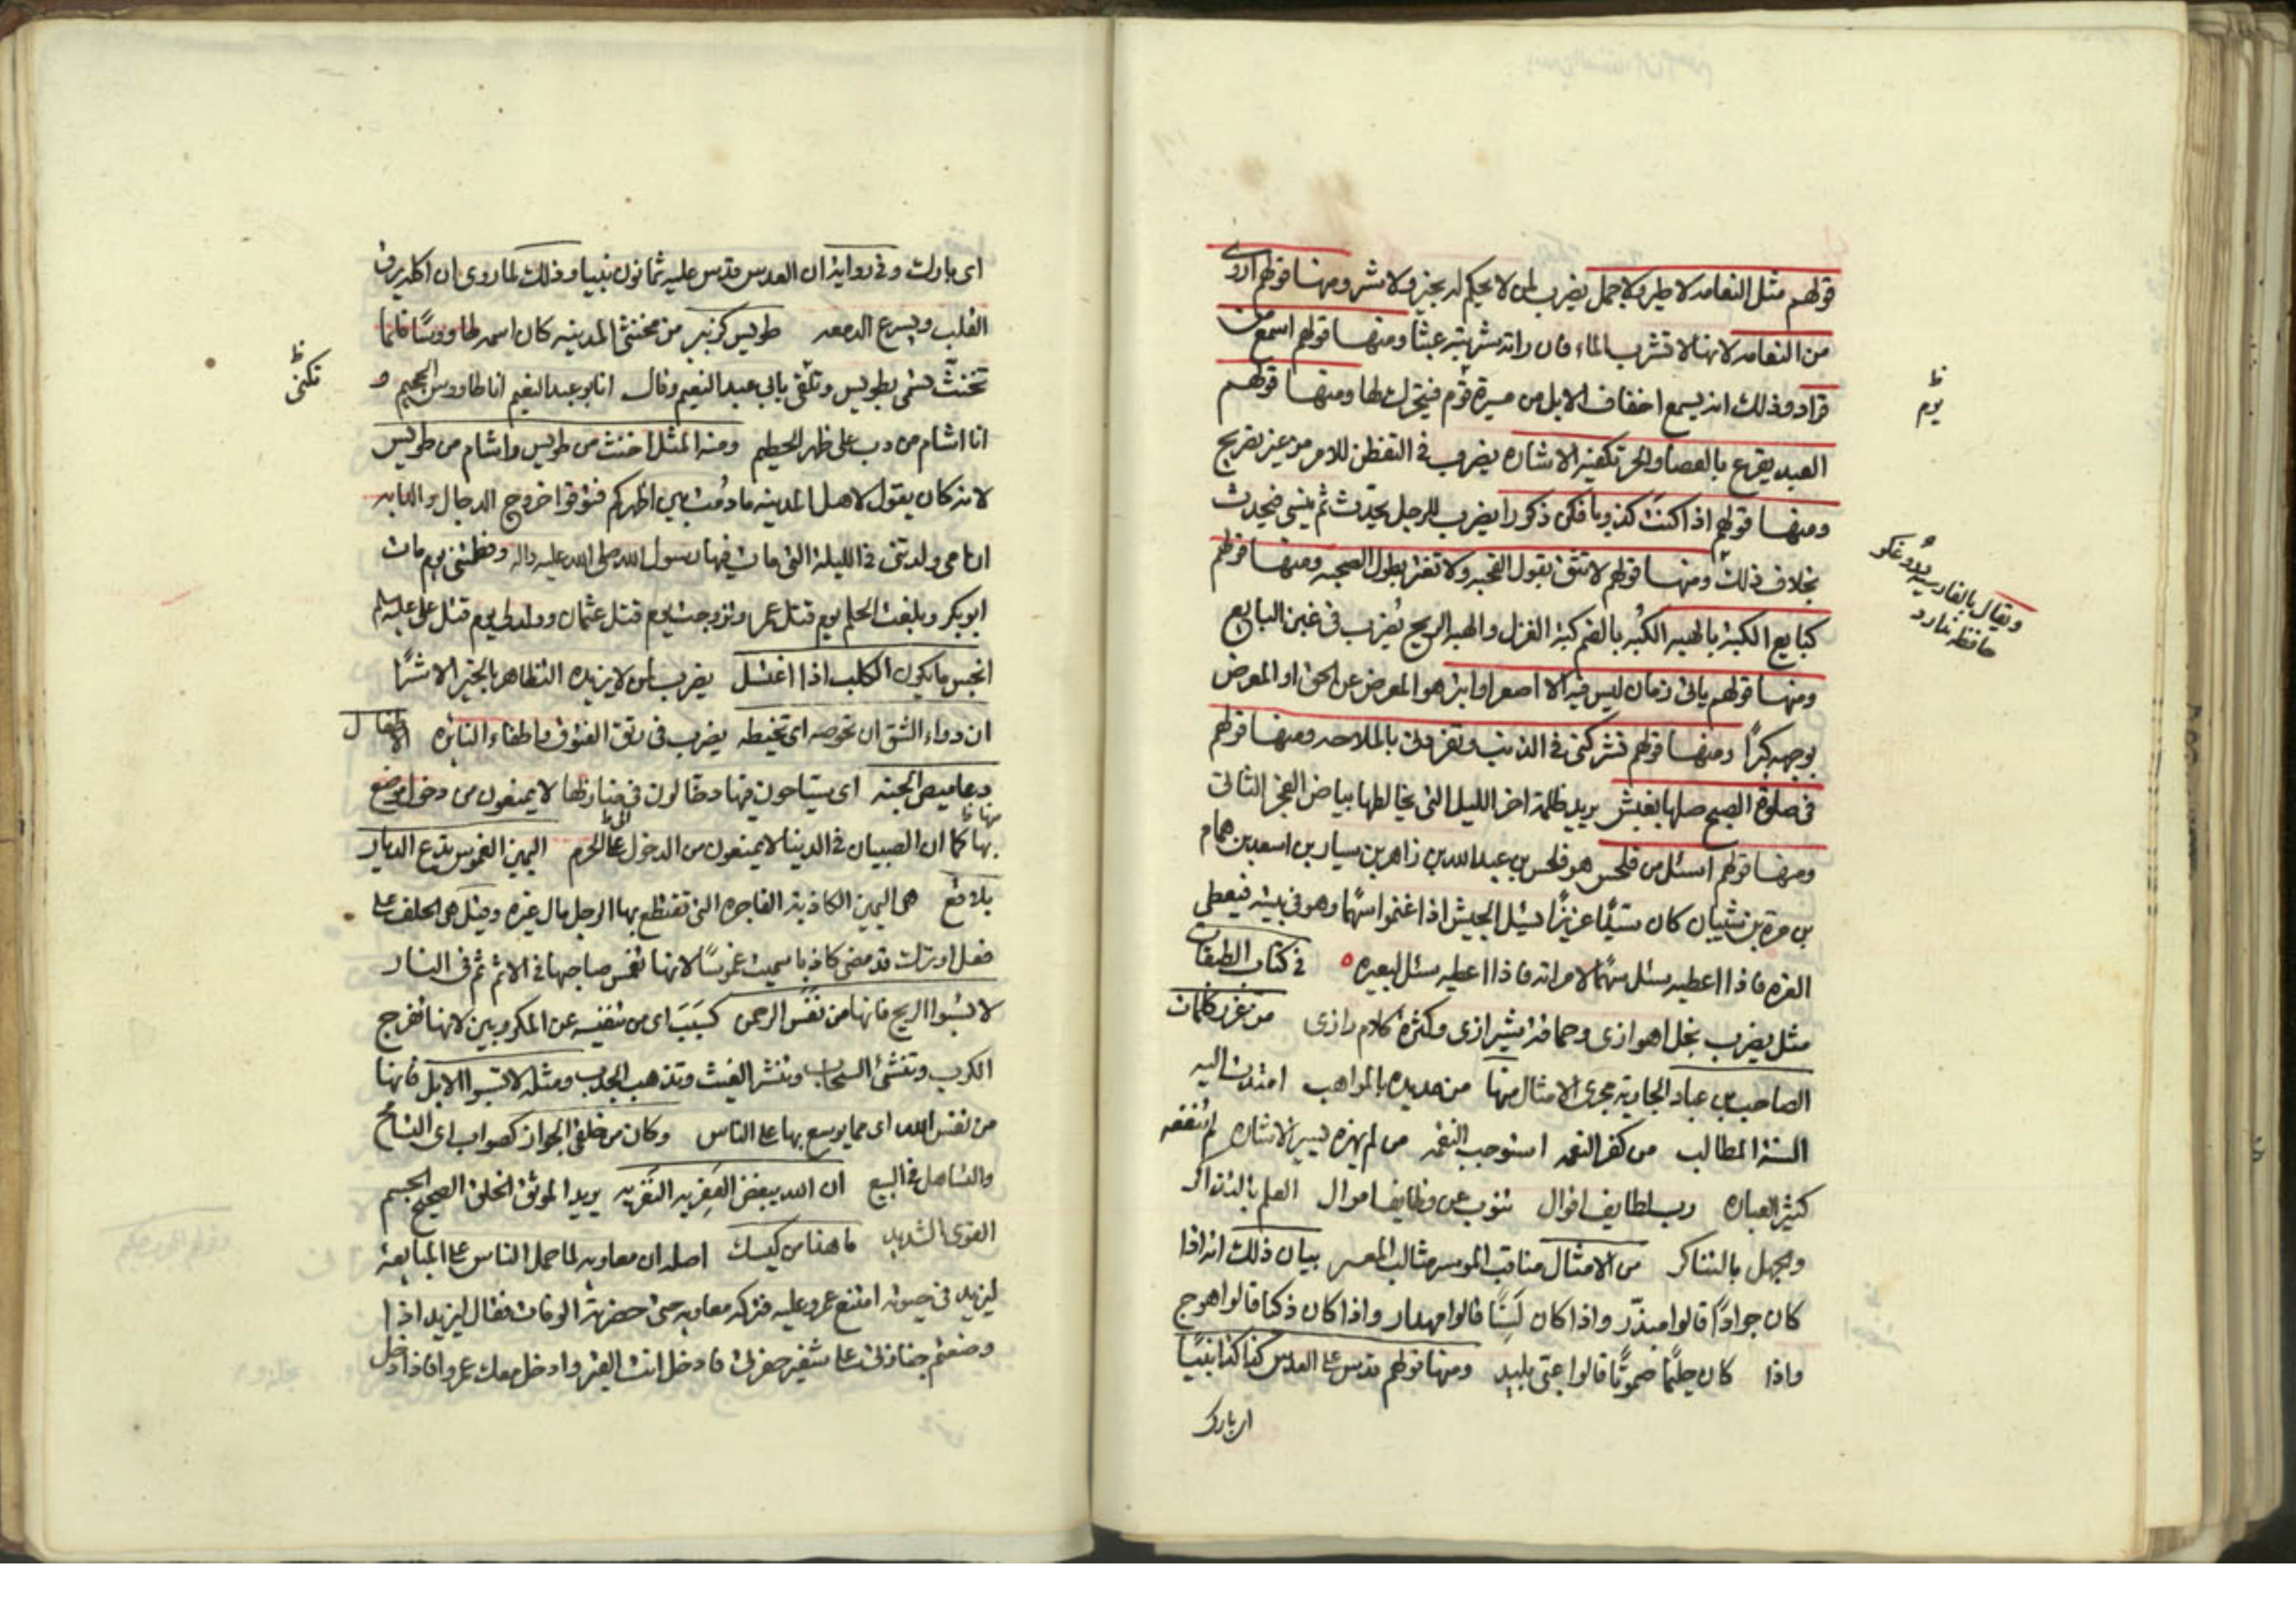 قولهم مثل النعامه لا طير ولا جمل يضرب لمن لا يحكم له بخير ولا شر ومنها قولهم اروى
من النعامه لانها لا تشرب الماء فان راته شربته عبثا ومنها قولهم اسمع من
قراد وذلك انه يسمع اخفاف الابل من مسيرة قوم فيتحرك لها ومنها قولهم
العبد يقرع بالعصا والحر تكفيه الاشاره يضرب في التفطن للامر من غير تصريح
ومنها قولهم اذا كنت كذوبا فكن ذكورا يضرب للرجل يحدث ثم ينسى فيحدث
بخلاف ذلك ومنها قولهم لا تثق بقول القحبه ولا تغتر بطول الصحبه ومنها قولهم
كبايع الكبة بالهبه الكبه بالضم كبة الغزل والهبه الريح يضرب في غبن البايع
ومنها قولهم ياتى زمان ليس فيه الا اصعر او ابتر هو المعرض عن الحق او المعرض
بوجهه كبرًا ومنها قولهم تشركنى فى الذنب وتفردنى بالملاحه ومنها قولهم
فى صلوة الصبح صلها بغبش يريد ظلمة اخر الليل التى يخالطها بياض الفجر الثانى
ومنها قولهم اسئل من فلحس هو فلحس بن عبد الله بن زاهر بن سيار بن اسعد بن همام
بن مرة بن شيبان كان سيّدًا عزيزًا يسئل الجيش اذا غنموا سهمًا وهو فى بيته فيعطى
العزه فاذا اعطيه سئل سهمًا لامراته فاذا اعطيه سئل لبعيره فى كتاب الطبقات
مثل يضرب بخل اهوازى وحماقة شيرازى وكثرة كلام رازى من غرر كلمات
الصاحب بن عباد الجارية مجرى الامثال منها من يده بالمواهب امتدت اليه
السنة المطالب من كفر النعمه استوجب النقمه من لم يهزه يسير الاشاره لم تنفعه
كثير العباره رب لطايف اقوال تنوب عن وظايف اموال العلم بالتذاكر
والجهل بالتناكر من الامثال مناقب الموسر مثالب المعسر بيان ذلك انه اذا
كان جوادًا قالوا مبذّر واذا كان لَسِنًا قالوا مهذار واذا كان ذكيا قالوا اهوج
واذا كان حليمًا صموتًا قالوا عىّ بليد ومنها قولهم قدس على العدس كذا كذا نبيًا
اى بارك
ظ
يوم
ويقال بالفارسيه دروغكو
حافظه ندارد
اى بارك وفى رواية ان العدس قدس عليه ثمانون نبيا وذلك لما روى ان اكله يرق
القلب ويسرع الدمعه طويس كزبير من مخنثى المدينه كان اسمه طاووسًا فلما
تخنث تسمى بطويس وتكنى بابى عبد النعيم وقال انا ابو عبد النعيم انا طاووس الجحيم و
انا اشام من دب على ظهر الحطيم ومنه المثل اخنث من طويس واشام من طويس
لانه كان يقول لاهل المدينه ما دمت بين اظهركم فتوقعوا خروج الدجال والدابه
ان امى ولدتنى فى الليلة التى مات فيها رسول الله صلى الله عليه واله وفطمتنى يوم مات
ابوبكر وبلغت الحلم يوم قتل عمر وتزوجت يوم قتل عثمان وولد لى يوم قتل على عليه السلم
انجس ما يكون الكلب اذا اغتسل يضرب لمن لا يزيده التظاهر بالخير الا شرًا
ان دواء الشق ان تحوصه اى تخيطه يضرب فى رتق الفتوق واطفاء النائره الاطفال
دعاميص الجنه اى سياحون فيها دخالون فى منازلها لا يمنعون من دخول موضع
بها كما ان الصبيان فى الدنيا لا يمنعون من الدخول على الحرم اليمين الغموس تدع الديار
بلاقع هى اليمين الكاذبة الفاجره التى تقتطع بها الرجل مال غيره وقيل هى الحلف على
فعل او ترك قد مضى كاذبا سميت غموسًا لانها تغمس صاحبها فى الاثم ثم فى النار
لا تسبوا الريح فانها من نفس الرحمن كسَبَب اى من تنفيسه عن المكروبين لانها تفرج
الكرب وتنشئ السحاب وتنشر الغيث وتذهب الجدب ومثله لا تسبوا الابل فانها
من نفس الله اى مما يوسع بها على الناس وكان من خلقى الجواز كصواب اى التسامح
والتساهل فى البيع ان الله يبغض العفريه النفريه يريد الموثق الخلق الصحيح الجسم
القوى الشديد ما هذا من كيسك اصله ان معاويه لما حمل الناس على المبايعة
ليزيد فى حيوته امتنع عمرو عليه فتركه معاويه حتى حضرته الوفات فقال ليزيد اذا
وضعتم جنازتى على شفير حفرتى فادخل انت القبر وادخل معك عمروا فاذا دخل
ظ
تكنى